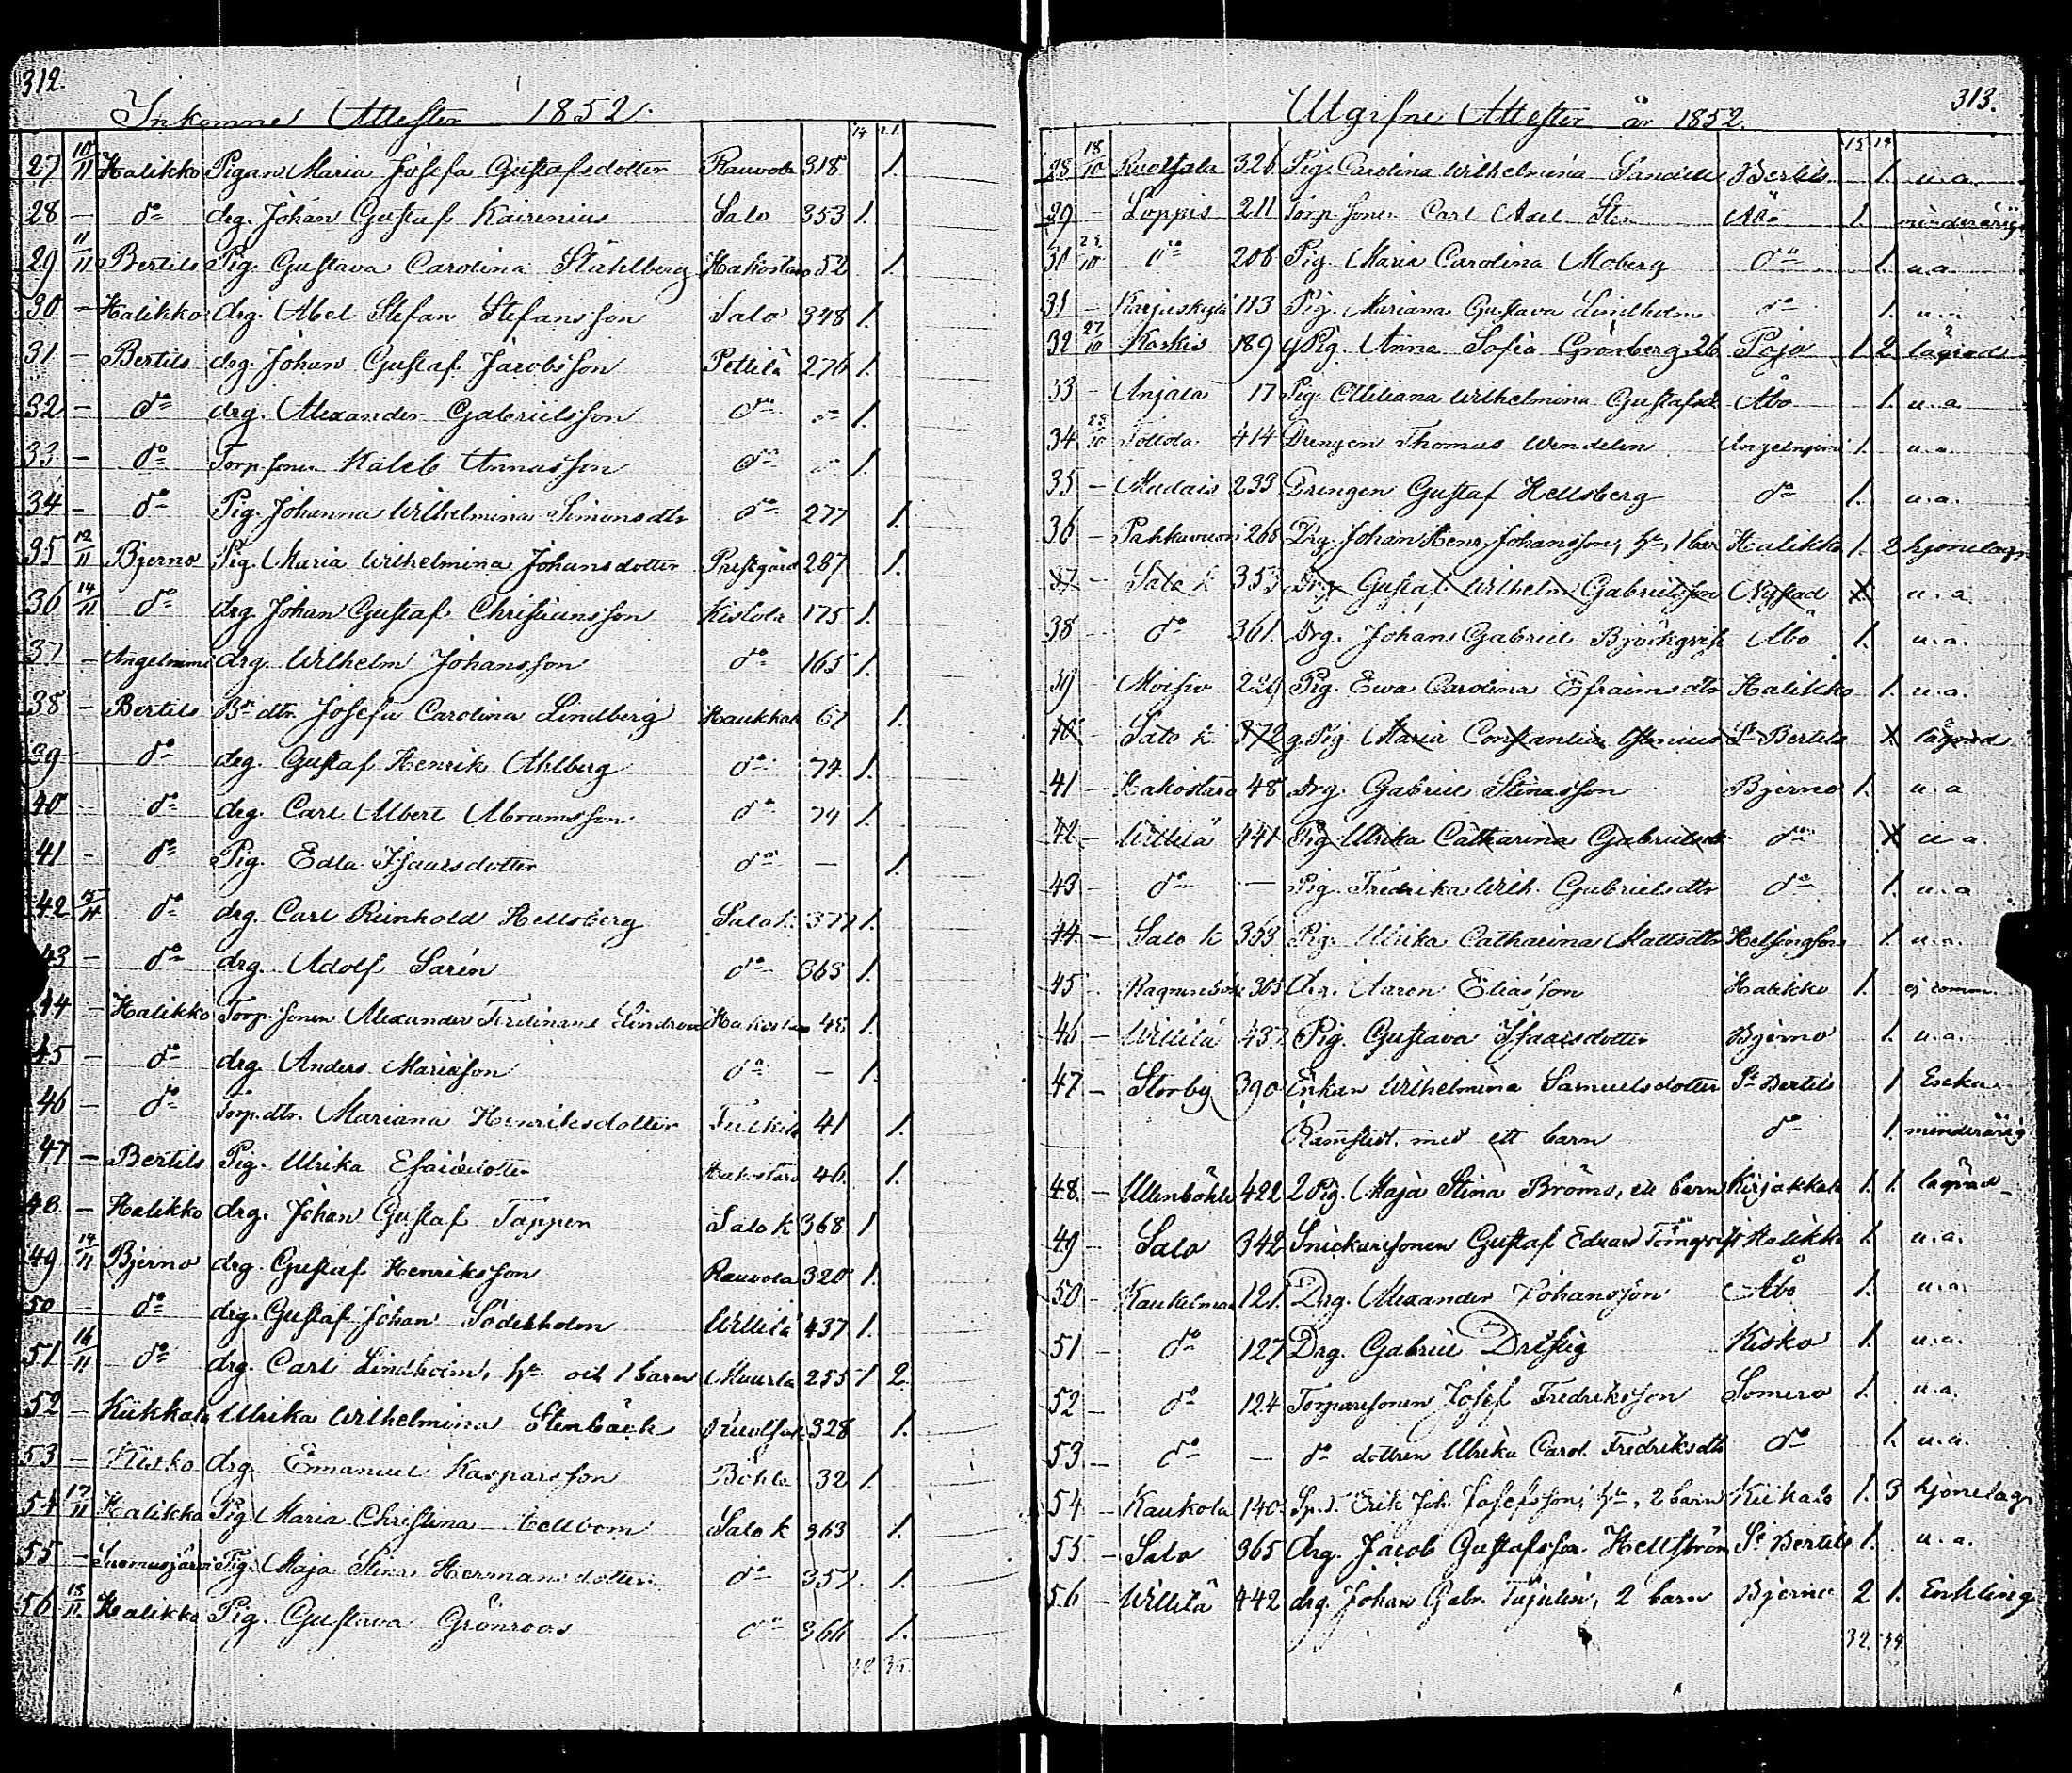 312.
Inkomne Attester 1852.
14 21
27 10/11 Halikko Pigan Maria Josefa Gustafsdotter Rauvola 318 1.
28 – do drg. Johan Gustaf Kairenius Salo 353 1.
29 11/11 Bertils Pig. Gustava Carolina Ståhlberg Hakostaro 52 1.
30 – Halikko drg. Abel Stefan Stefansson Salo 348 1.
31 – Bertils drg. Johan Gustaf Jacobsson Pettilä 276 1.
32 – do drg. Alexander Gabrielsson do do 1.
33 – do Torp.sonen Kaleb Annasson do do 1.
34 – do Pig. Johanna Wilhelmina Simonsdtr do 277 1.
35 12/11 Bjerno Pig. Maria Wilhelmina Johansdotter Prestgård 287 1.
36 14/11 do drg Johan Gustaf Christiansson Kistola 175 1.
37 – Angelniemi drg. Wilhelm Johansson do 165 1.
38 – Bertils Bn dtr. Josefa Carolina Lindberg Haukkala 67 1.
39 – do drg. Gustaf Henrik Ahlberg do 74 1.
40 – do drg. Carl Albert Abramsson do 74 1.
41 – do Pig. Edla Isaacsdotter do – 1.
42 15/11 do drg. Carl Reinhold Hellsberg Salo k. 377 1.
43 – do drg. Adolf Sarén do 363 1.
44 – Halikko Torp.sonen Alexander Ferdinand Hakostaro 48 1.
45 – do drg. Anders Mariasson do – 1.
46 – do Torp.dtr. Mariana Henriksdotter 41 1.
47 – Bertils Pig. Ulrika Esaiedotter Hakostaro 46 1.
48 – Halikko drg. Johan Gustaf Tappen Salo k 368 1
49 14/11 Bjerno drg. Gustaf Henriksson Rauvola 320 1.
50 – do drg. Gustaf Johan Söderholm Willilä 437 1.
51 16/11 do drg. Carl Lindholm, hu och 1 barn Muurla 255 1 2.
52 – Kiikkala Ulrika Wilhelmina Stenbäck Ruotsala 328 1.
53 – Kisko drg. Emanuel Kasparsson Böhle 32 1.
54 17/11 Halikko Pig Maria Christina Hellbom Salo k 363 1.
55 – Suomusjärvi Pig. Maja Stina Hermansdotter do 357. 1.
56 18/11 Halikko Pig. Gustava Grönroos do 366 1.
32 35.
313.
Utgifne Attester år 1852.
15 14
28 18/10 Ruotsala 326 Pig. Carolina Wilhelmina Sandell Bertils 1. u.a.
29 – Loppis 211 Torp.sonen Carl Axel Åbo 1. minderårig
30 25/10 do 208 Pig. Maria Carolina Moberg do 1. u.a.
31 – Karjaskylä 113 Pig. Mariana Gustava Lindholm do 1. u.a.
32 27/10 Koskis 189 qPig. Anna Sofia Grönberg, 2b Pojo 1. 2. lägrad
33 – Anjala 17 Pig. Wilhelmina Gustafsd. Åbo 1. u.a
34 28/10 Tottola 414 Drengen Thomas Wendelin Angelniemi 1. u.a.
35 – 233 Drengen Gustaf Hellsberg do 1. u.a.
36 – Pahkavuori 268 Drg. Johan Henr. Johansson, hu, 1 barn Halikko 1. 2 hjonelag
37 – Salo k 353 Drg Gustaf Wilhelm Gabrielsson Nystad 1 u.a
38 – do 361. Drg. Johan Gabriel Björkqvist Åbo 1. u.a.
39 – Moisio 229 Pig. Ewa Carolina Efraimsdtr Halikko 1. u.a.
40 – Salo k 372 q.Pig. Maria Constantia St Bertils 1 lägrad
41 – Hakostaro 48 Drg. Gabriel Stinasson Bjerno 1. u.a
42 – Willilä 441 Pig. Ulrika Catharina Gabrielsdr do 1 u.a.
43 – do — Pig. Fredrika Wilh. Gabrielsdtr do 1. u.a
44 – Salo k 353 Pig. Ulrika Catharina Mattsdtr Helsingfors 1. u.a.
45 – 305 Dr. Aaron Eliasson Halikko 1. ej comm.
46 – Willilä 437. Pig. Gustava Isaacsdotter Bjerno 1. u.a.
47 – Storby 390 Enkan Wilhelmina Samuelsdotter St Bertils 1 Enka
Ramstedt, med ett barn do 1. minderårig
48. – Ullenböhle 422 2 Pig. Maja Stina Broms, ett barn Kirjakkala 1. 1. lägrad
49 – Salo 342 Snickarsonen Gustaf Eduard Törnqvist Halikko 1. u.a.
50 – Kaukelmaa 121. Drg. Alexander Johansson Åbo 1. u.a.
51 – do 127 Drg. Gabriel Dristig Kisko 1. u.a.
52 – do 124 Torparesonen Josef Fredriksson Somero 1. u.a.
53. – do — do dottren Ulrika Carol. Fredriksdtr do 1. u.a.
54. – Kaukola 140. Sp.d. Erik Joh. Josefsson, hu, 2 barn Kiikala 1. 3 hjonelag
55 – Salo 365 drg. Jacob Gustafsson Hellström St Bertils 1. u.a.
56 – Willilä 442 drg. Johan Gabr. Tujulin, 2 barn Bjerno 2 1. Enkling
32. 34.